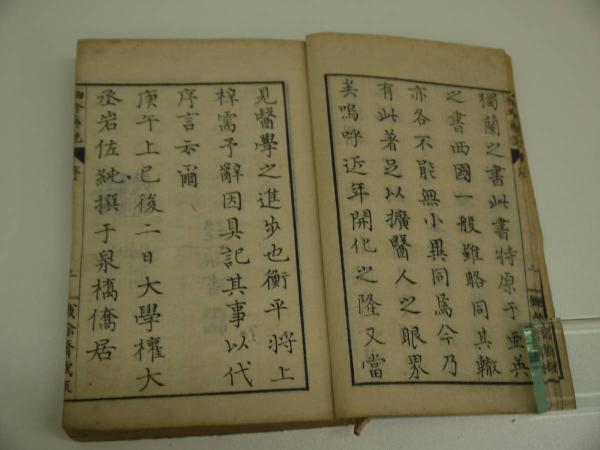 獨蘭之書此書特原于亜英
之書西國一般雖略同其轍
亦各不能無小異同焉今乃
有此著足以擴醫人之眼界
矣嗚呼近年開化之隆又當
見醫學之進步也衡平將上
梓需予辭因具記其事以代
序言云爾
庚午上巳後二日大學權大
丞岩佐純撰于泉橋僑居
序